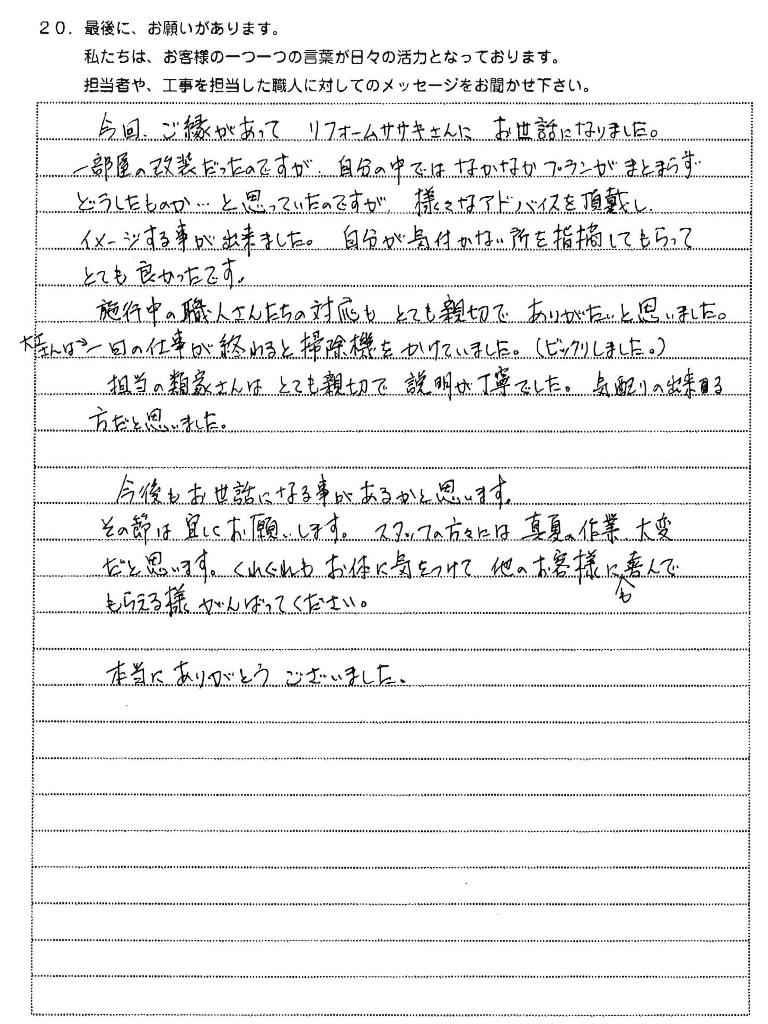 20．最後に、お願いがあります。
私たちは、お客様の一つ一つの言葉が日々の活力となっております。
担当者や、工事を担当した職人に対してのメッセージをお聞かせ下さい。
今回、ご縁があって リフォームササキさんに お世話になりました。
一部屋の改装だったのですが、自分の中では なかなかプランが まとまらず
どうしたものか…と思っていたのですが、様々なアドバイスを頂戴し、
イメージする事が出来ました。 自分が気付かない所を指摘してもらって
とても良かったです。
施行中の職人さんたちの対応も とても親切で ありがたいと思いました。
大工さんは→一日の仕事が終わると掃除機をかけていました。(ビックリしました。)
担当の類家さんは とても親切で 説明が丁寧でした。 気配りの出来る
方だと思いました。
今後もお世話になる事があるかと思います。
その節は宜しくお願いします。 スタッフの方々には 真夏の作業、大変
だと思います。くれぐれもお体に気をつけて 他のお客様にも喜んで
もらえる様 がんばってください。
本当に ありがとう ございました。